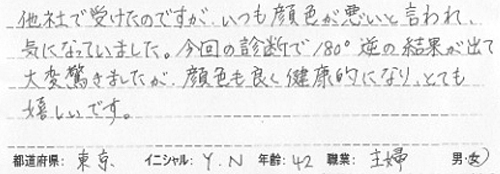 他社で受けたのですが、いつも顔色が悪いと言われ、
気になっていました。今回の診断で180°逆の結果が出て
大変驚きましたが、顔色も良く健康的になり、とても
嬉しいです。
都道府県: 東京、 イニシャル: Y.N 年齢: 42 職業: 主婦 男・女